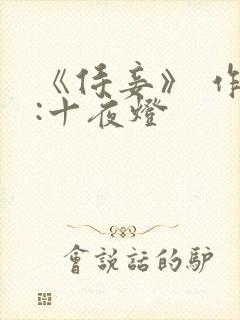 《侍妾》 作
:十夜燈
會說話的驴